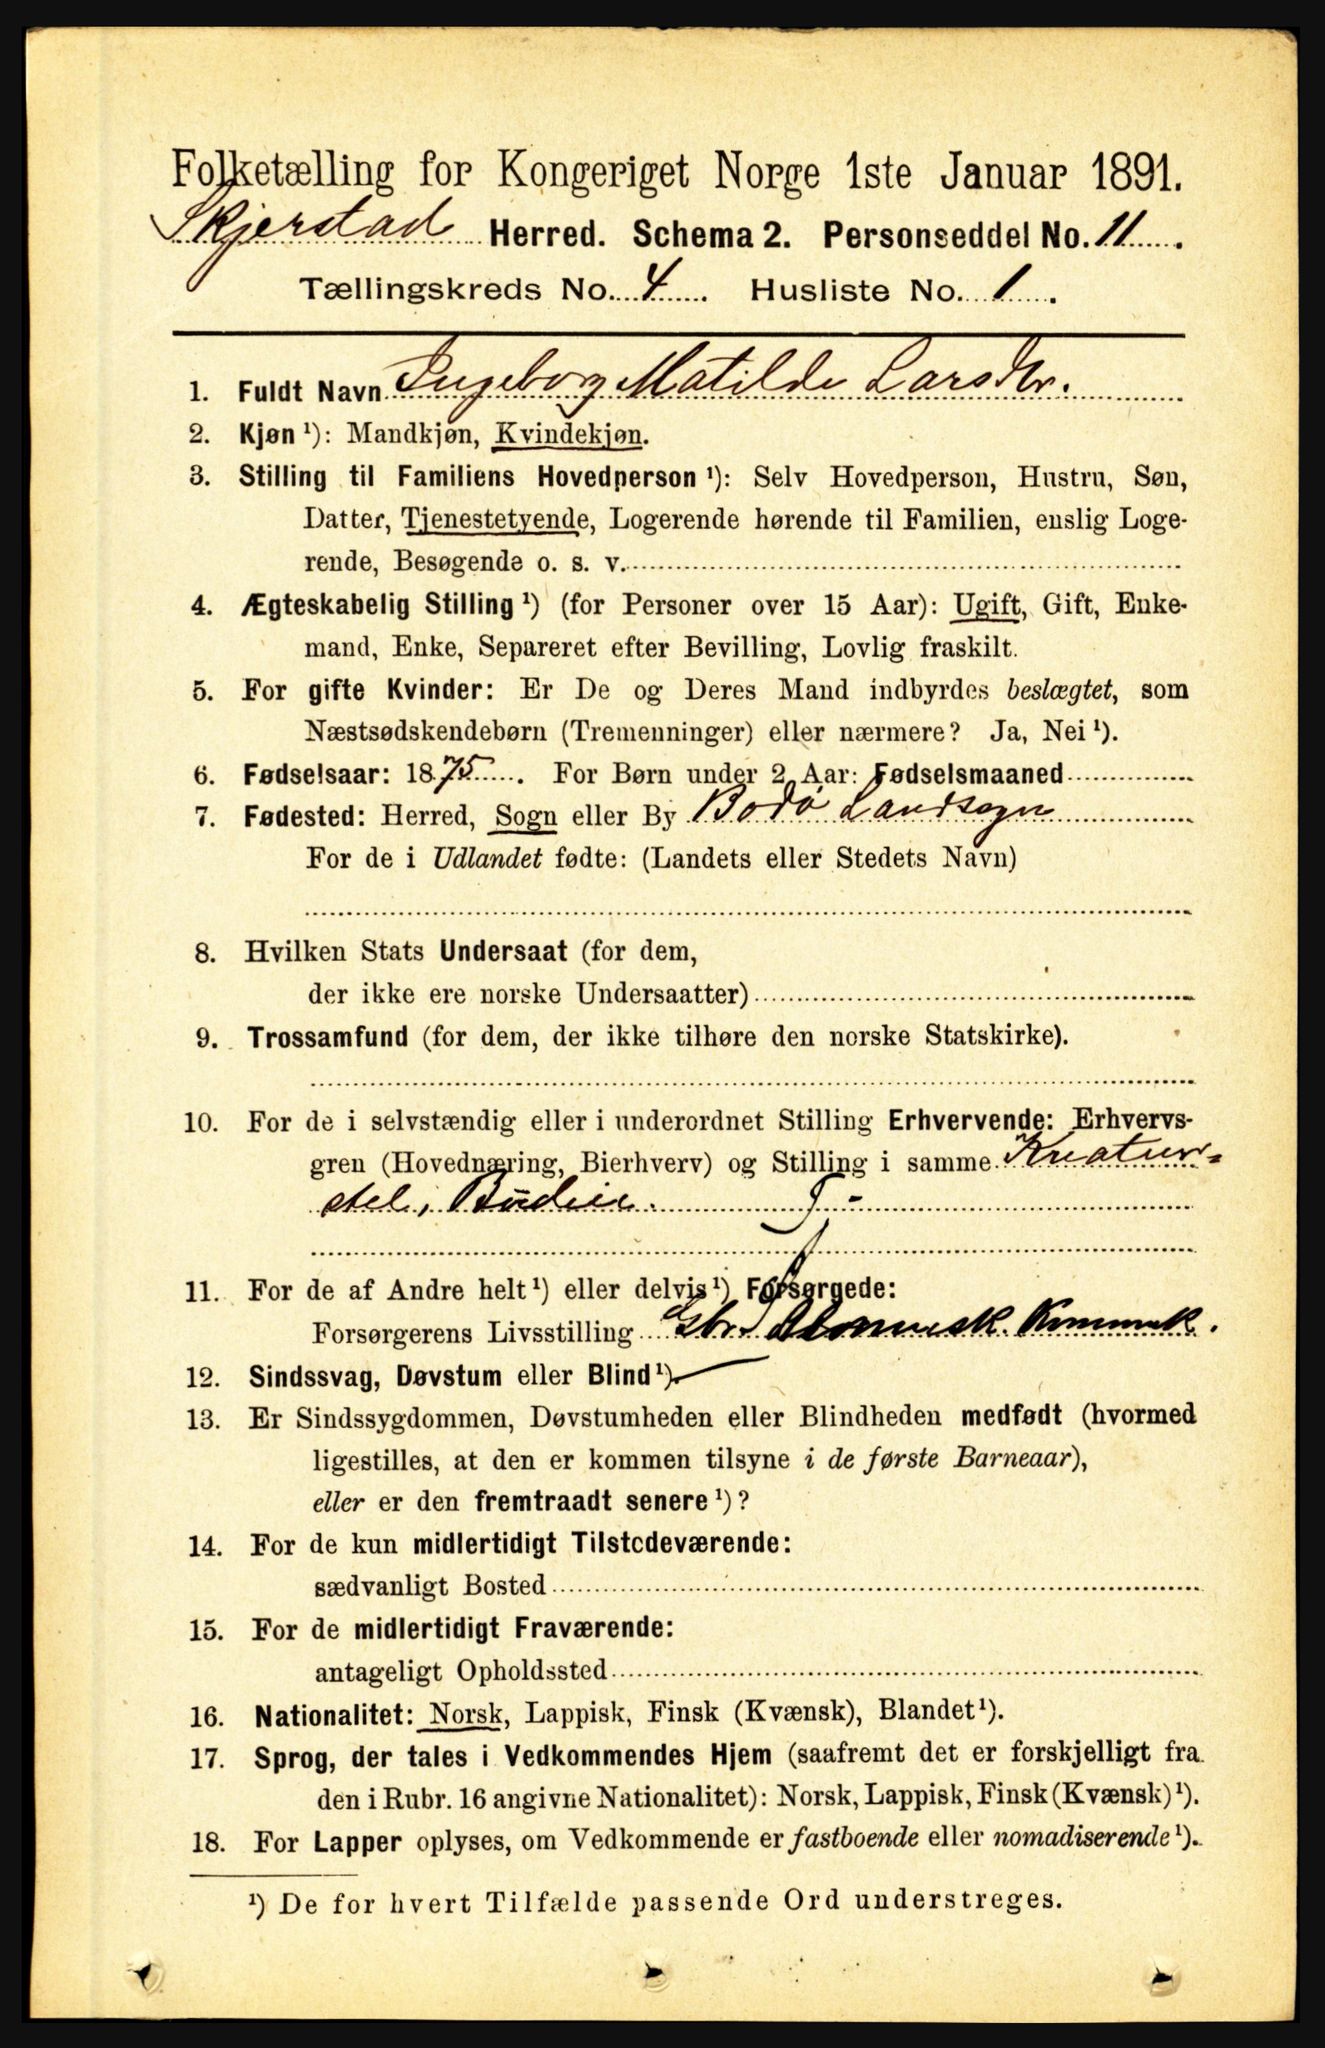 Folketælling for Kongeriget Norge 1ste Januar 1891.
Skjerstad Herred. Schema 2. Personseddel No. 11.
Tællingskreds No. 4. Husliste No. 1.
1. Fuldt Navn Ingeborg Matilde Larsdtr.
2. Kjøn ¹): Mandkjøn, Kvindekjøn.
3. Stilling til Familiens Hovedperson ¹): Selv Hovedperson, Hustru, Søn,
Datter, Tjenestetyende, Logerende hørende til Familien, enslig Loge-
rende, Besøgende o. s. v.
4. Ægteskabelig Stilling ¹) (for Personer over 15 Aar): Ugift, Gift, Enke-
mand, Enke, Separeret efter Bevilling, Lovlig fraskilt.
5. For gifte Kvinder: Er De og Deres Mand indbyrdes beslægtet, som
Næstsødskendebørn (Tremenninger) eller nærmere? Ja, Nei ¹).
6. Fødselsaar: 1875. For Børn under 2 Aar: Fødselsmaaned
7. Fødested: Herred, Sogn eller By Bodø Landsogn
For de i Udlandet fødte: (Landets eller Stedets Navn)
8. Hvilken Stats Undersaat (for dem,
der ikke ere norske Undersaatter)
9. Trossamfund (for dem, der ikke tilhøre den norske Statskirke).
10. For de i selvstændig eller i underordnet Stilling Erhvervende: Erhvervs-
gren (Hovednæring, Bierhverv) og Stilling i samme Kreatur-
stel, Budeie.
11. For de af Andre helt ¹) eller delvis ¹) Forsørgede:
Forsørgerens Livsstilling
12. Sindssvag, Døvstum eller Blind ¹).
13. Er Sindssygdommen, Døvstumheden eller Blindheden medfødt (hvormed
ligestilles, at den er kommen tilsyne i de første Barneaar),
eller er den fremtraadt senere ¹)?
14. For de kun midlertidigt Tilstedeværende:
sædvanligt Bosted
15. For de midlertidigt Fraværende:
antageligt Opholdssted
16. Nationalitet: Norsk, Lappisk, Finsk (Kvænsk), Blandet ¹).
17. Sprog, der tales i Vedkommendes Hjem (saafremt det er forskjelligt fra
den i Rubr. 16 angivne Nationalitet): Norsk, Lappisk, Finsk (Kvænsk) ¹).
18. For Lapper oplyses, om Vedkommende er fastboende eller nomadiserende ¹).
¹) De for hvert Tilfælde passende Ord understreges.